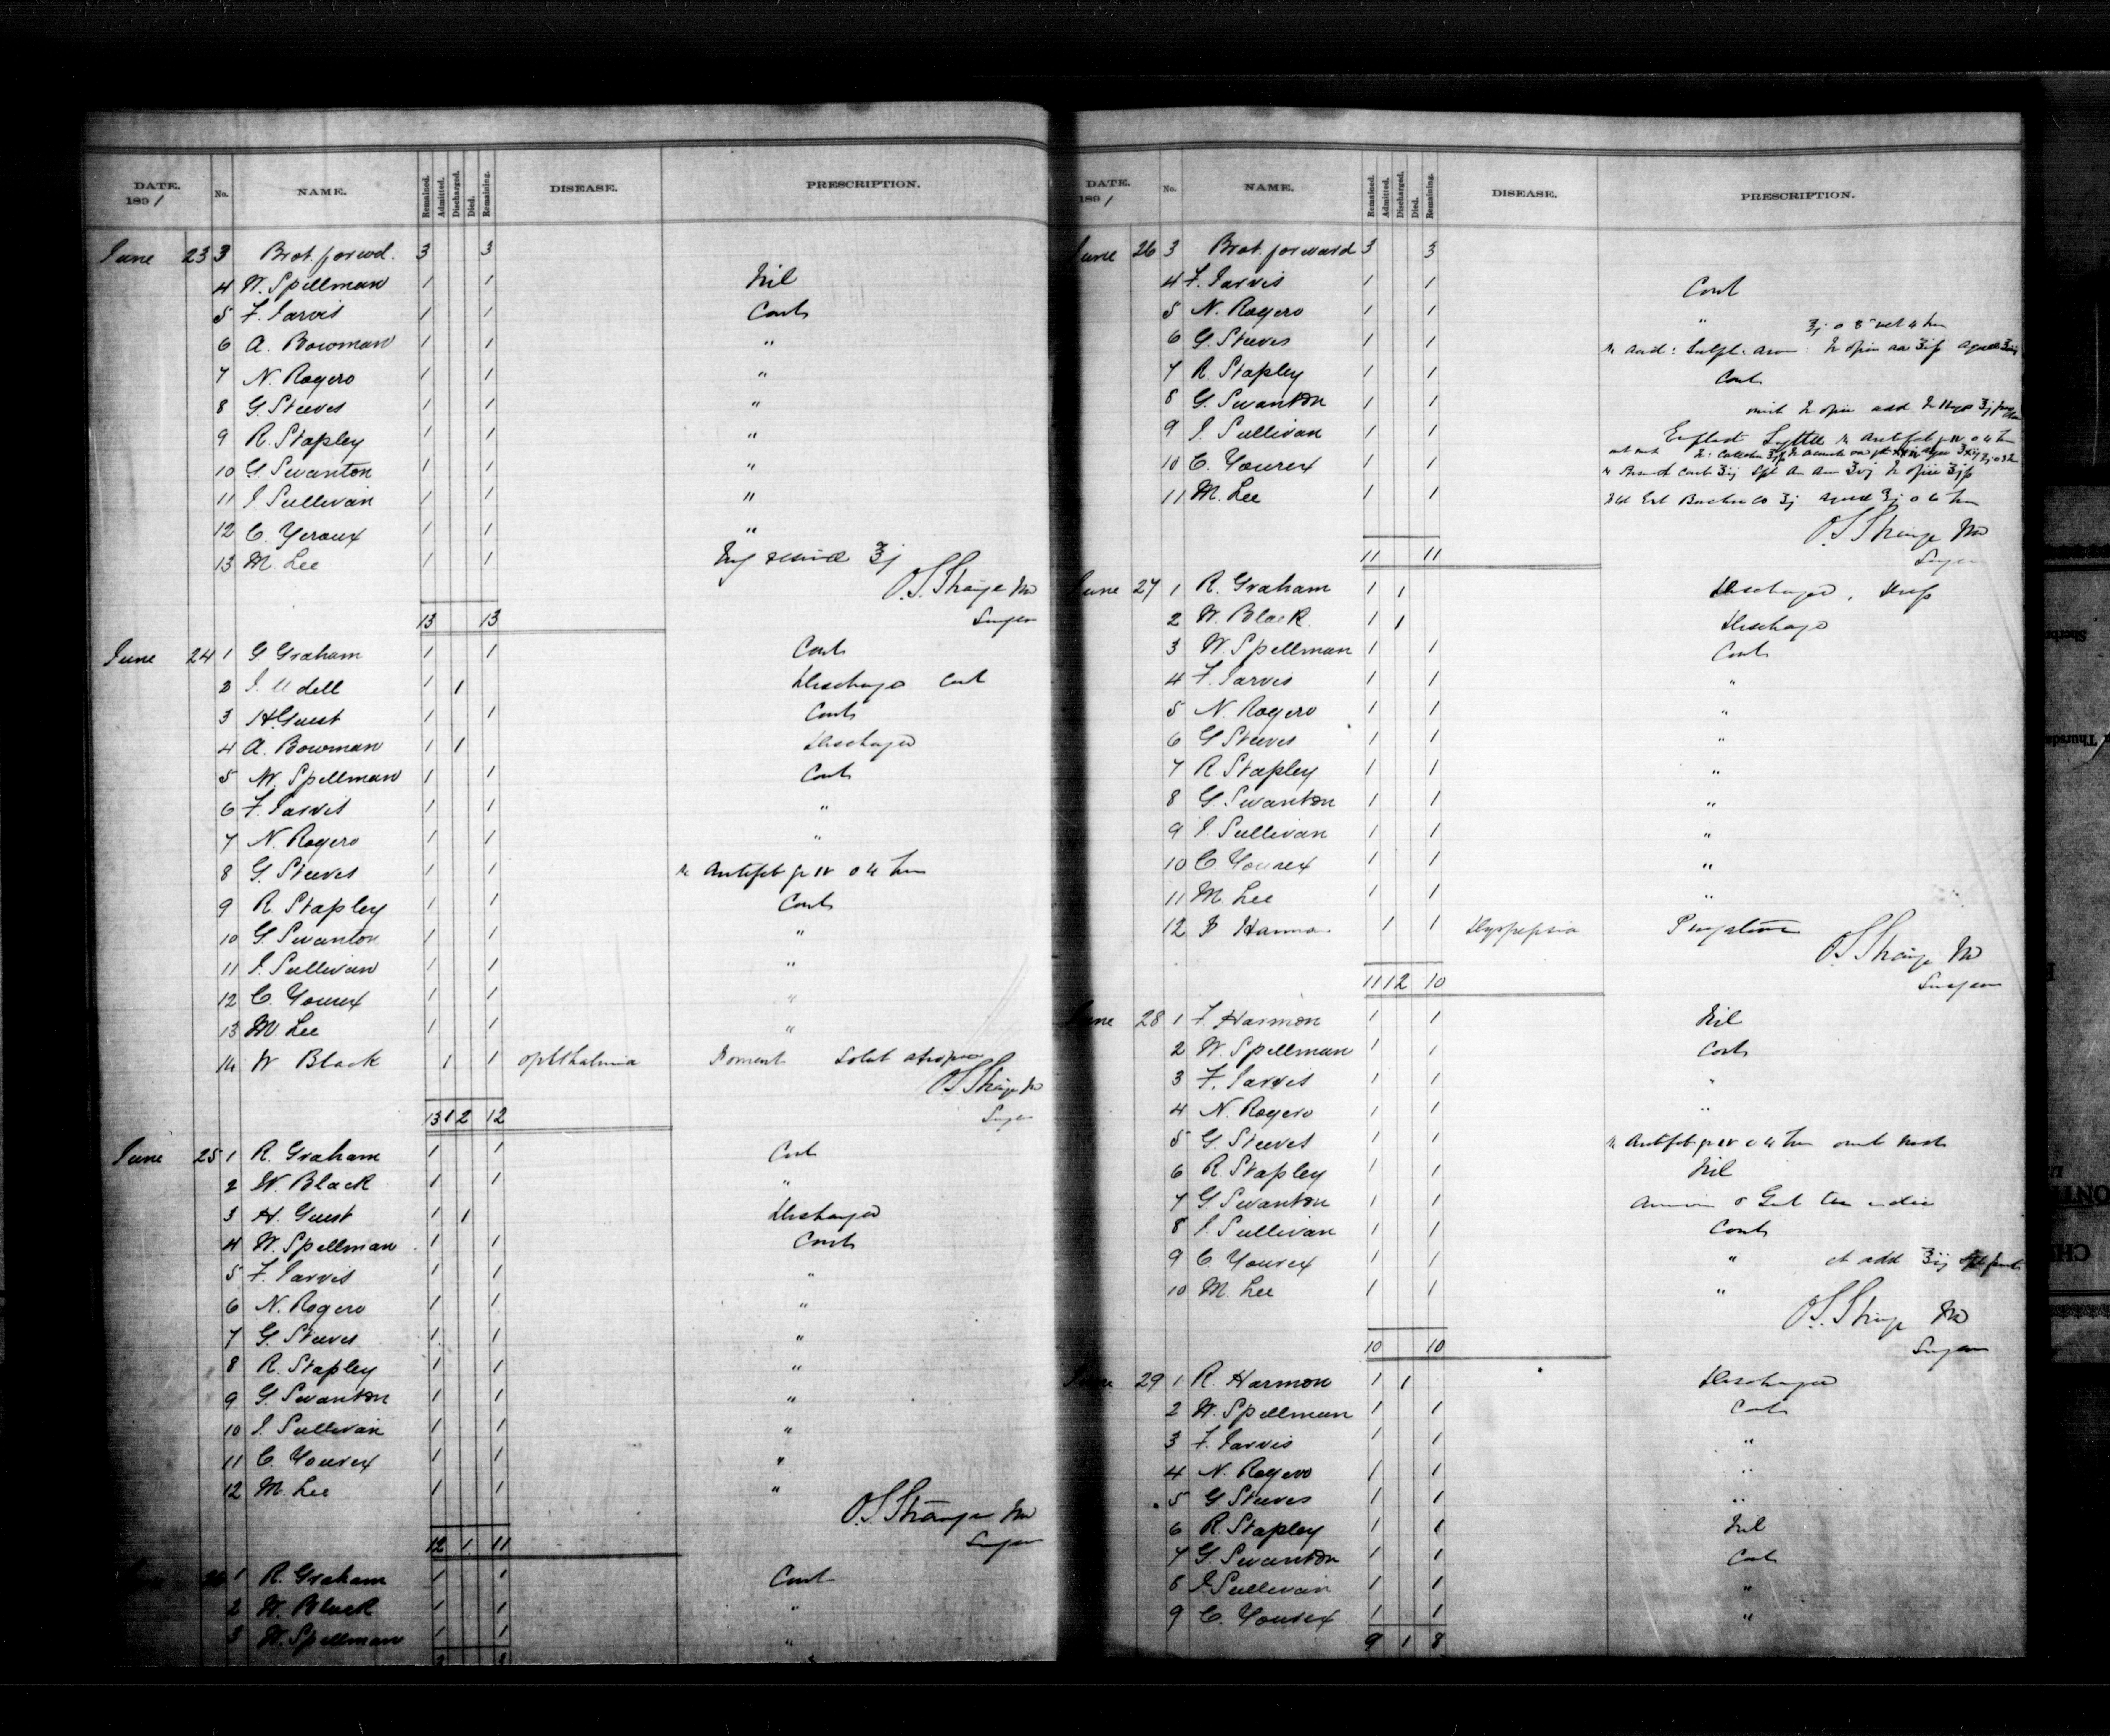 DATE. 1891 No. NAME. Remained. Admitted. Discharged. Died. Remaining. DISEASE. PRESCRIPTION.
June 23 3 Brot. forwd. 3 3
4 W. Spellman 1 1 Nil
5 F. Jarvis 1 1 Cont
6 A. Bowman 1 1 "
7 N. Rogers 1 1 "
8 G. Steeves 1 1 "
9 R. Stapley 1 1 "
10 G. Swanton 1 1 "
11 J. Sullivan 1 1 "
12 C. Yeroux 1 1 "
13 M. Lee 1 1 ʒj
O.S. Strange MD
13 13 Surgeon
June 24 1 G Graham 1 1 Cont
2 J. Udell 1 1 Discharged Cont
3 H Guest 1 1 Cont
4 A. Bowman 1 1 Discharged
5 W. Spellman 1 1 Cont
6 F. Jarvis 1 1 "
7 N. Rogers 1 1 "
8 G. Steeves 1 1 Antifeb gr iv
9 R. Stapley 1 1 Cont
10 G. Swanton 1 1 "
11 J. Sullivan 1 1 "
12 C. Yourex 1 1 "
13 M. Lee 1 1 "
14 W Black 1 1 ophthalmia Foment Solut atropine
O.S. Strange MD
13 1 2 12 Surgeon
June 25 1 R. Graham 1 1 Cont
2 W. Black 1 1 "
3 H. Guest 1 1 Discharged
4 W. Spellman 1 1 Cont
5 F. Jarvis 1 1 "
6 N. Rogers 1 1 "
7 G. Steeves 1 1 "
8 R. Stapley 1 1 "
9 G. Swanton 1 1 "
10 J. Sullivan 1 1 "
11 C. Yourex 1 1 "
12 M. Lee 1 1 "
O.S. Strange MD
12 1 11 Surgeon
June 26 1 R. Graham 1 1 Cont
2 W. Black 1 1 "
3 W. Spellman 1 1 "
3 3
DATE. 1891 No. NAME. Remained. Admitted. Discharged. Died. Remaining. DISEASE. PRESCRIPTION.
June 26 3 Brot. forward 3 3
4 F. Jarvis 1 1 Cont
5 N. Rogers 1 1 "
6 G. Steeves 1 1
7 R Stapley 1 1 Cont
8 G. Swanton 1 1
9 J. Sullivan 1 1
10 C. Yourex 1 1
11 M. Lee 1 1
O.S. Strange MD
11 11 Surgeon
June 27 1 R. Graham 1 1 Discharged
2 W. Black 1 1 Discharged
3 W. Spellman 1 1 Cont
4 F. Jarvis 1 1 "
5 N. Rogers 1 1 "
6 G Steeves 1 1 "
7 R. Stapley 1 1 "
8 G. Swanton 1 1 "
9 J. Sullivan 1 1 "
10 C. Yourex 1 1 "
11 M Lee 1 1 "
12 1 1 Dyspepsia Purgative
O.S. Strange MD
11 1 2 10 Surgeon
June 28 1 F. Harmon 1 1 Nil
2 W. Spellman 1 1 Cont
3 F. Jarvis 1 1 "
4 N. Rogers 1 1 "
5 G. Steeves 1 1 Antifeb gr iv
6 R. Stapley 1 1 Nil
7 G. Swanton 1 1
8 J. Sullivan 1 1 Cont
9 C Yourex 1 1 " et add
10 M. Lee 1 1 "
O.S. Strange MD
10 10 Surgeon
June 29 1 R. Harmon 1 1 Discharged
2 W. Spellman 1 1 Cont
3 F. Jarvis 1 1 "
4 N. Rogers 1 1 "
5 G Steeves 1 1 "
6 R. Stapley 1 1 Nil
7 G. Swanton 1 1 Cont
8 J. Sullivan 1 1 "
9 C. Yourex 1 1 "
9 1 8